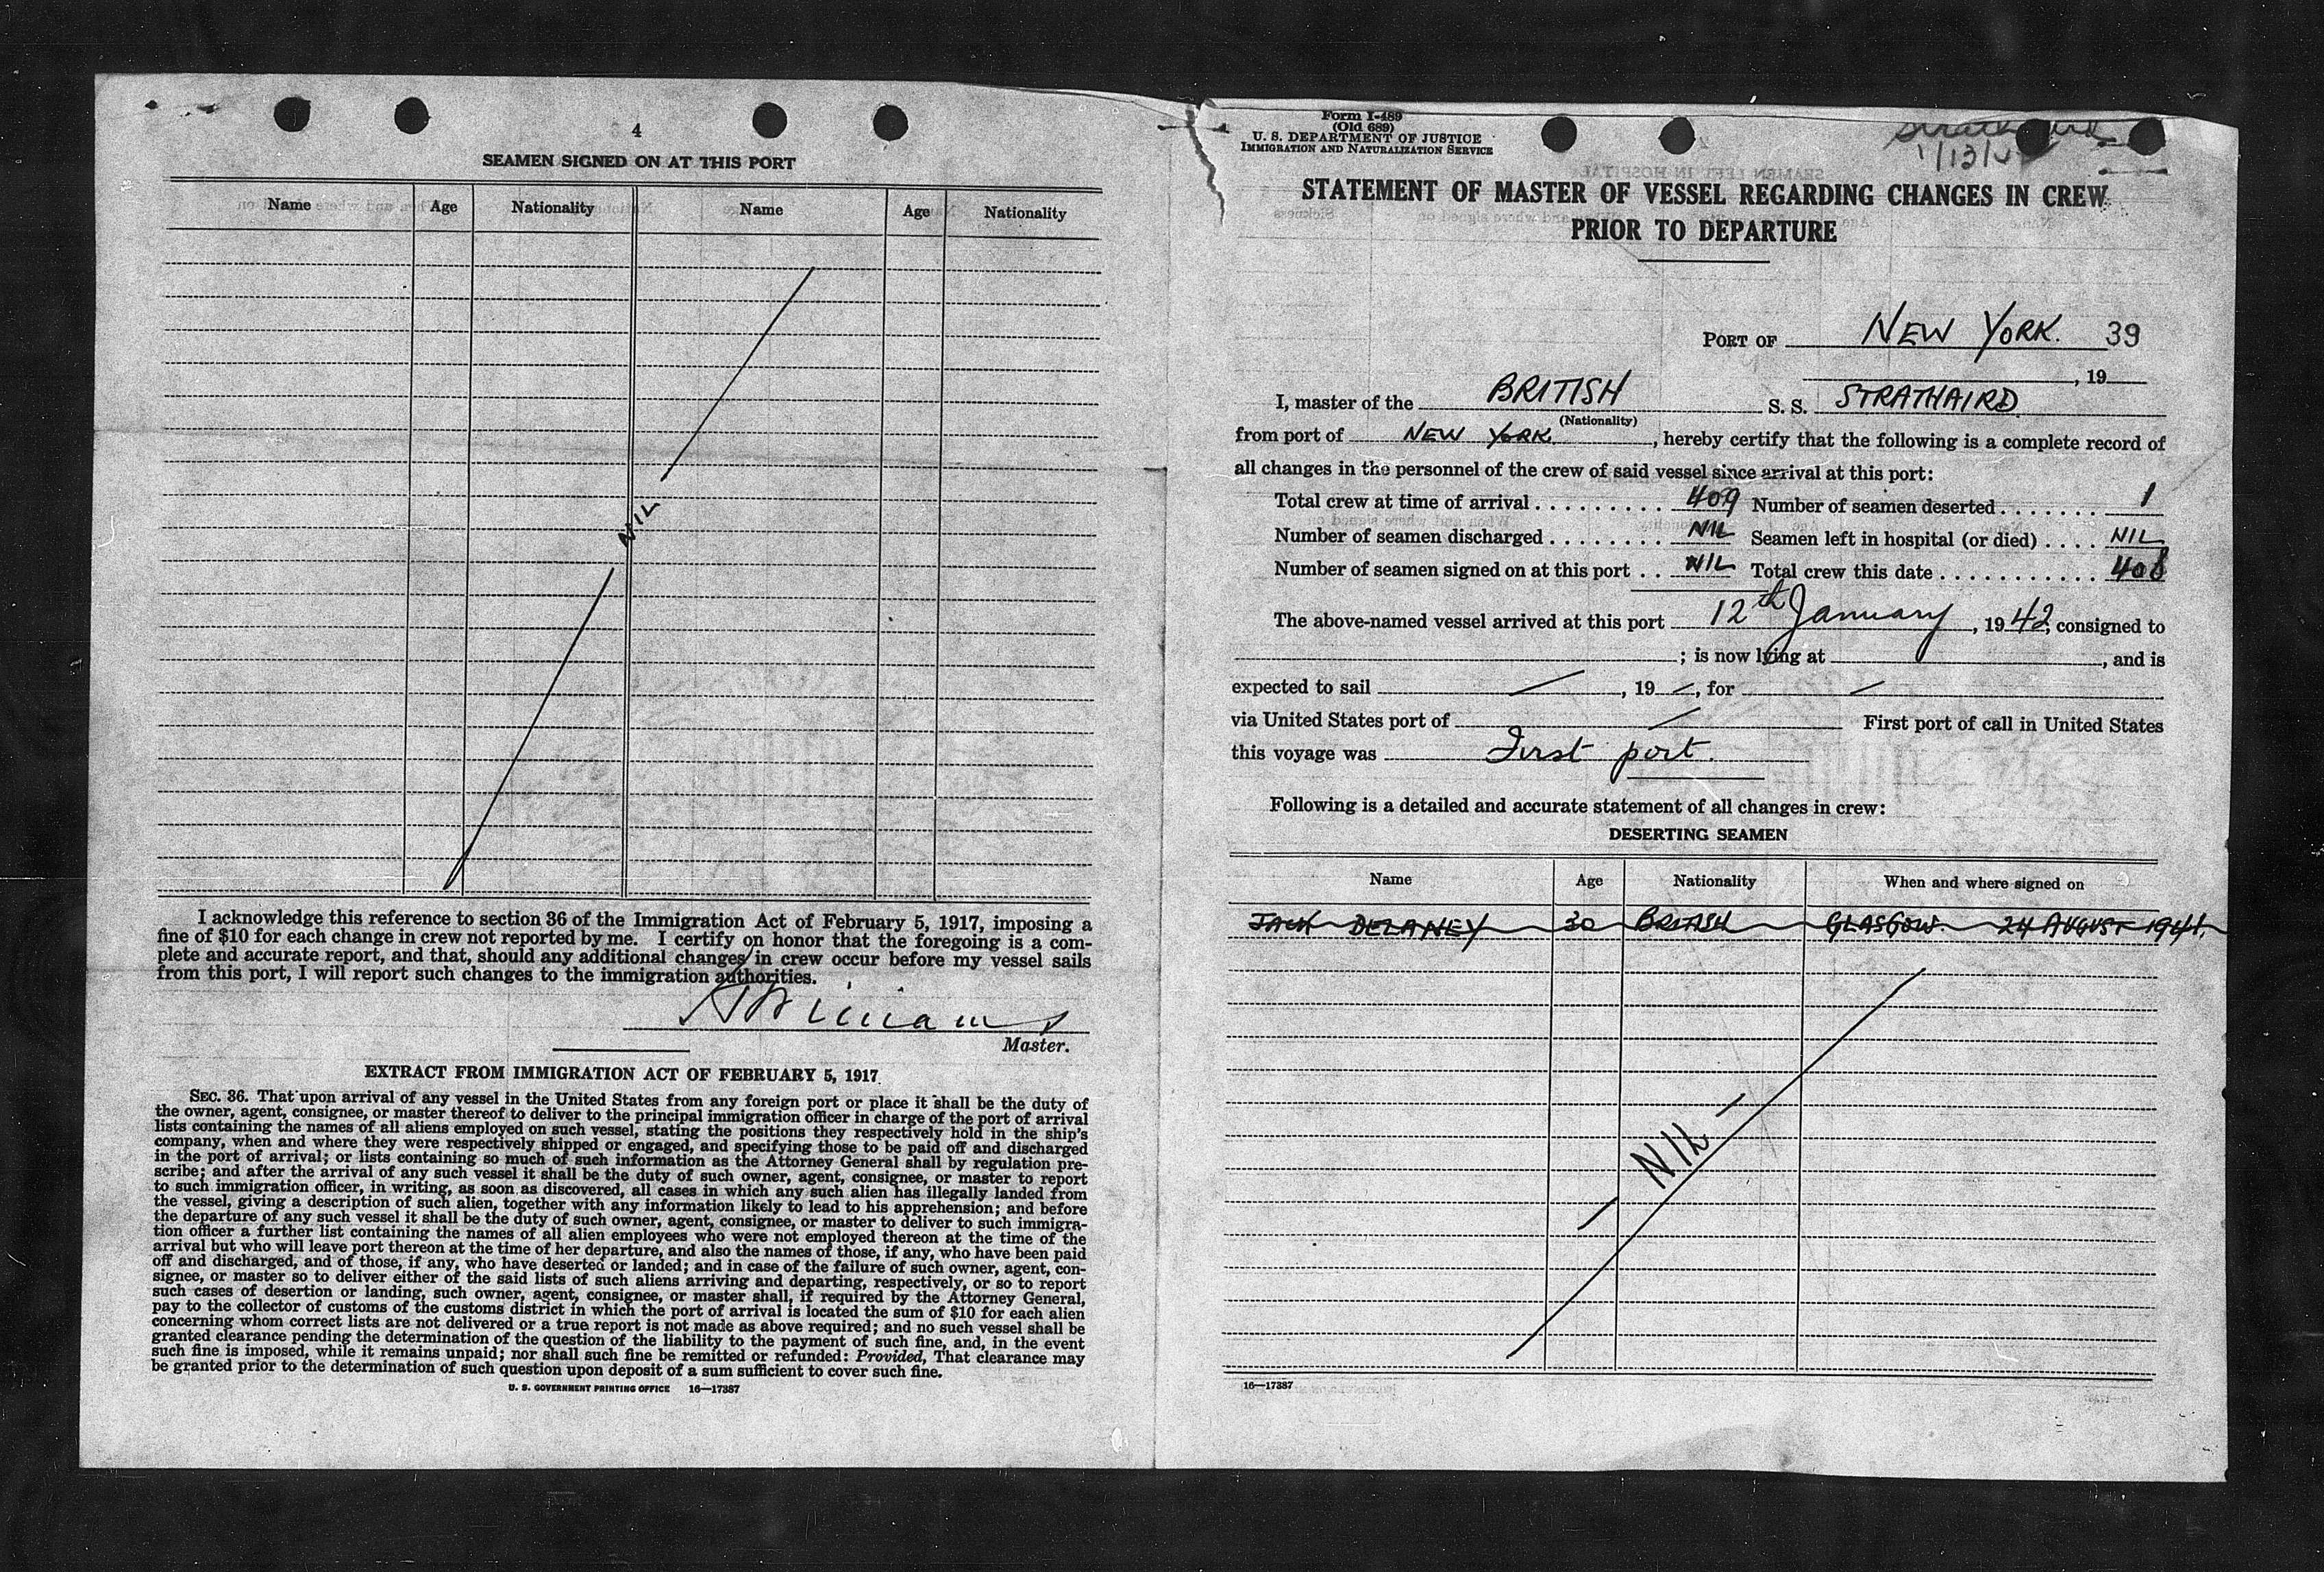 4
SEAMEN SIGNED ON AT THIS PORT
Name Age Nationality Name Age Nationality
NIL
I acknowledge this reference to section 36 of the Immigration Act of February 5, 1917, imposing a
fine of $10 for each change in crew not reported by me. I certify on honor that the foregoing is a com-
plete and accurate report, and that, should any additional changes in crew occur before my vessel sails
from this port, I will report such changes to the immigration authorities.
Master.
EXTRACT FROM IMMIGRATION ACT OF FEBRUARY 5, 1917
SEC. 36. That upon arrival of any vessel in the United States from any foreign port or place it shall be the duty of
the owner, agent, consignee, or master thereof to deliver to the principal immigration officer in charge of the port of arrival
lists containing the names of all aliens employed on such vessel, stating the positions they respectively hold in the ship's
company, when and where they were respectively shipped or engaged, and specifying those to be paid off and discharged
in the port of arrival; or lists containing so much of such information as the Attorney General shall by regulation pre-
scribe; and after the arrival of any such vessel it shall be the duty of such owner, agent, consignee, or master to report
to such immigration officer, in writing, as soon as discovered, all cases in which any such alien has illegally landed from
the vessel, giving a description of such alien, together with any information likely to lead to his apprehension; and before
the departure of any such vessel it shall be the duty of such owner, agent, consignee, or master to deliver to such immigra-
tion officer a further list containing the names of all alien employees who were not employed thereon at the time of the
arrival but who will leave port thereon at the time of her departure, and also the names of those, if any, who have been paid
off and discharged, and of those, if any, who have deserted or landed; and in case of the failure of such owner, agent, con-
signee, or master so to deliver either of the said lists of such aliens arriving and departing, respectively, or so to report
such cases of desertion or landing, such owner, agent, consignee, or master shall, if required by the Attorney General,
pay to the collector of customs of the customs district in which the port of arrival is located the sum of $10 for each alien
concerning whom correct lists are not delivered or a true report is not made as above required; and no such vessel shall be
granted clearance pending the determination of the question of the liability to the payment of such fine, and, in the event
such fine is imposed, while it remains unpaid; nor shall such fine be remitted or refunded: Provided, That clearance may
be granted prior to the determination of such question upon deposit of a sum sufficient to cover such fine.
U. S. GOVERNMENT PRINTING OFFICE 16—17387
Form I-489
(Old 689)
U. S. DEPARTMENT OF JUSTICE
IMMIGRATION AND NATURALIZATION SERVICE
STATEMENT OF MASTER OF VESSEL REGARDING CHANGES IN CREW
PRIOR TO DEPARTURE
PORT OF NEW YORK. 39
, 19
I, master of the BRITISH S. S. STRATHAIRD
(Nationality)
from port of NEW YORK, hereby certify that the following is a complete record of
all changes in the personnel of the crew of said vessel since arrival at this port:
Total crew at time of arrival . . . . . . . . . 409 Number of seamen deserted . . . . . . . 1
Number of seamen discharged . . . . . . . . NIL Seamen left in hospital (or died) . . . . NIL
Number of seamen signed on at this port . . NIL Total crew this date . . . . . . . . . . . 408
The above-named vessel arrived at this port 12th January, 1942, consigned to
; is now lying at , and is
expected to sail , 19 , for
via United States port of First port of call in United States
this voyage was First port.
Following is a detailed and accurate statement of all changes in crew:
DESERTING SEAMEN
Name Age Nationality When and where signed on
JACK DELANEY 30 BRITISH GLASGOW. 24 AUGUST 1941.
NIL
16—17387